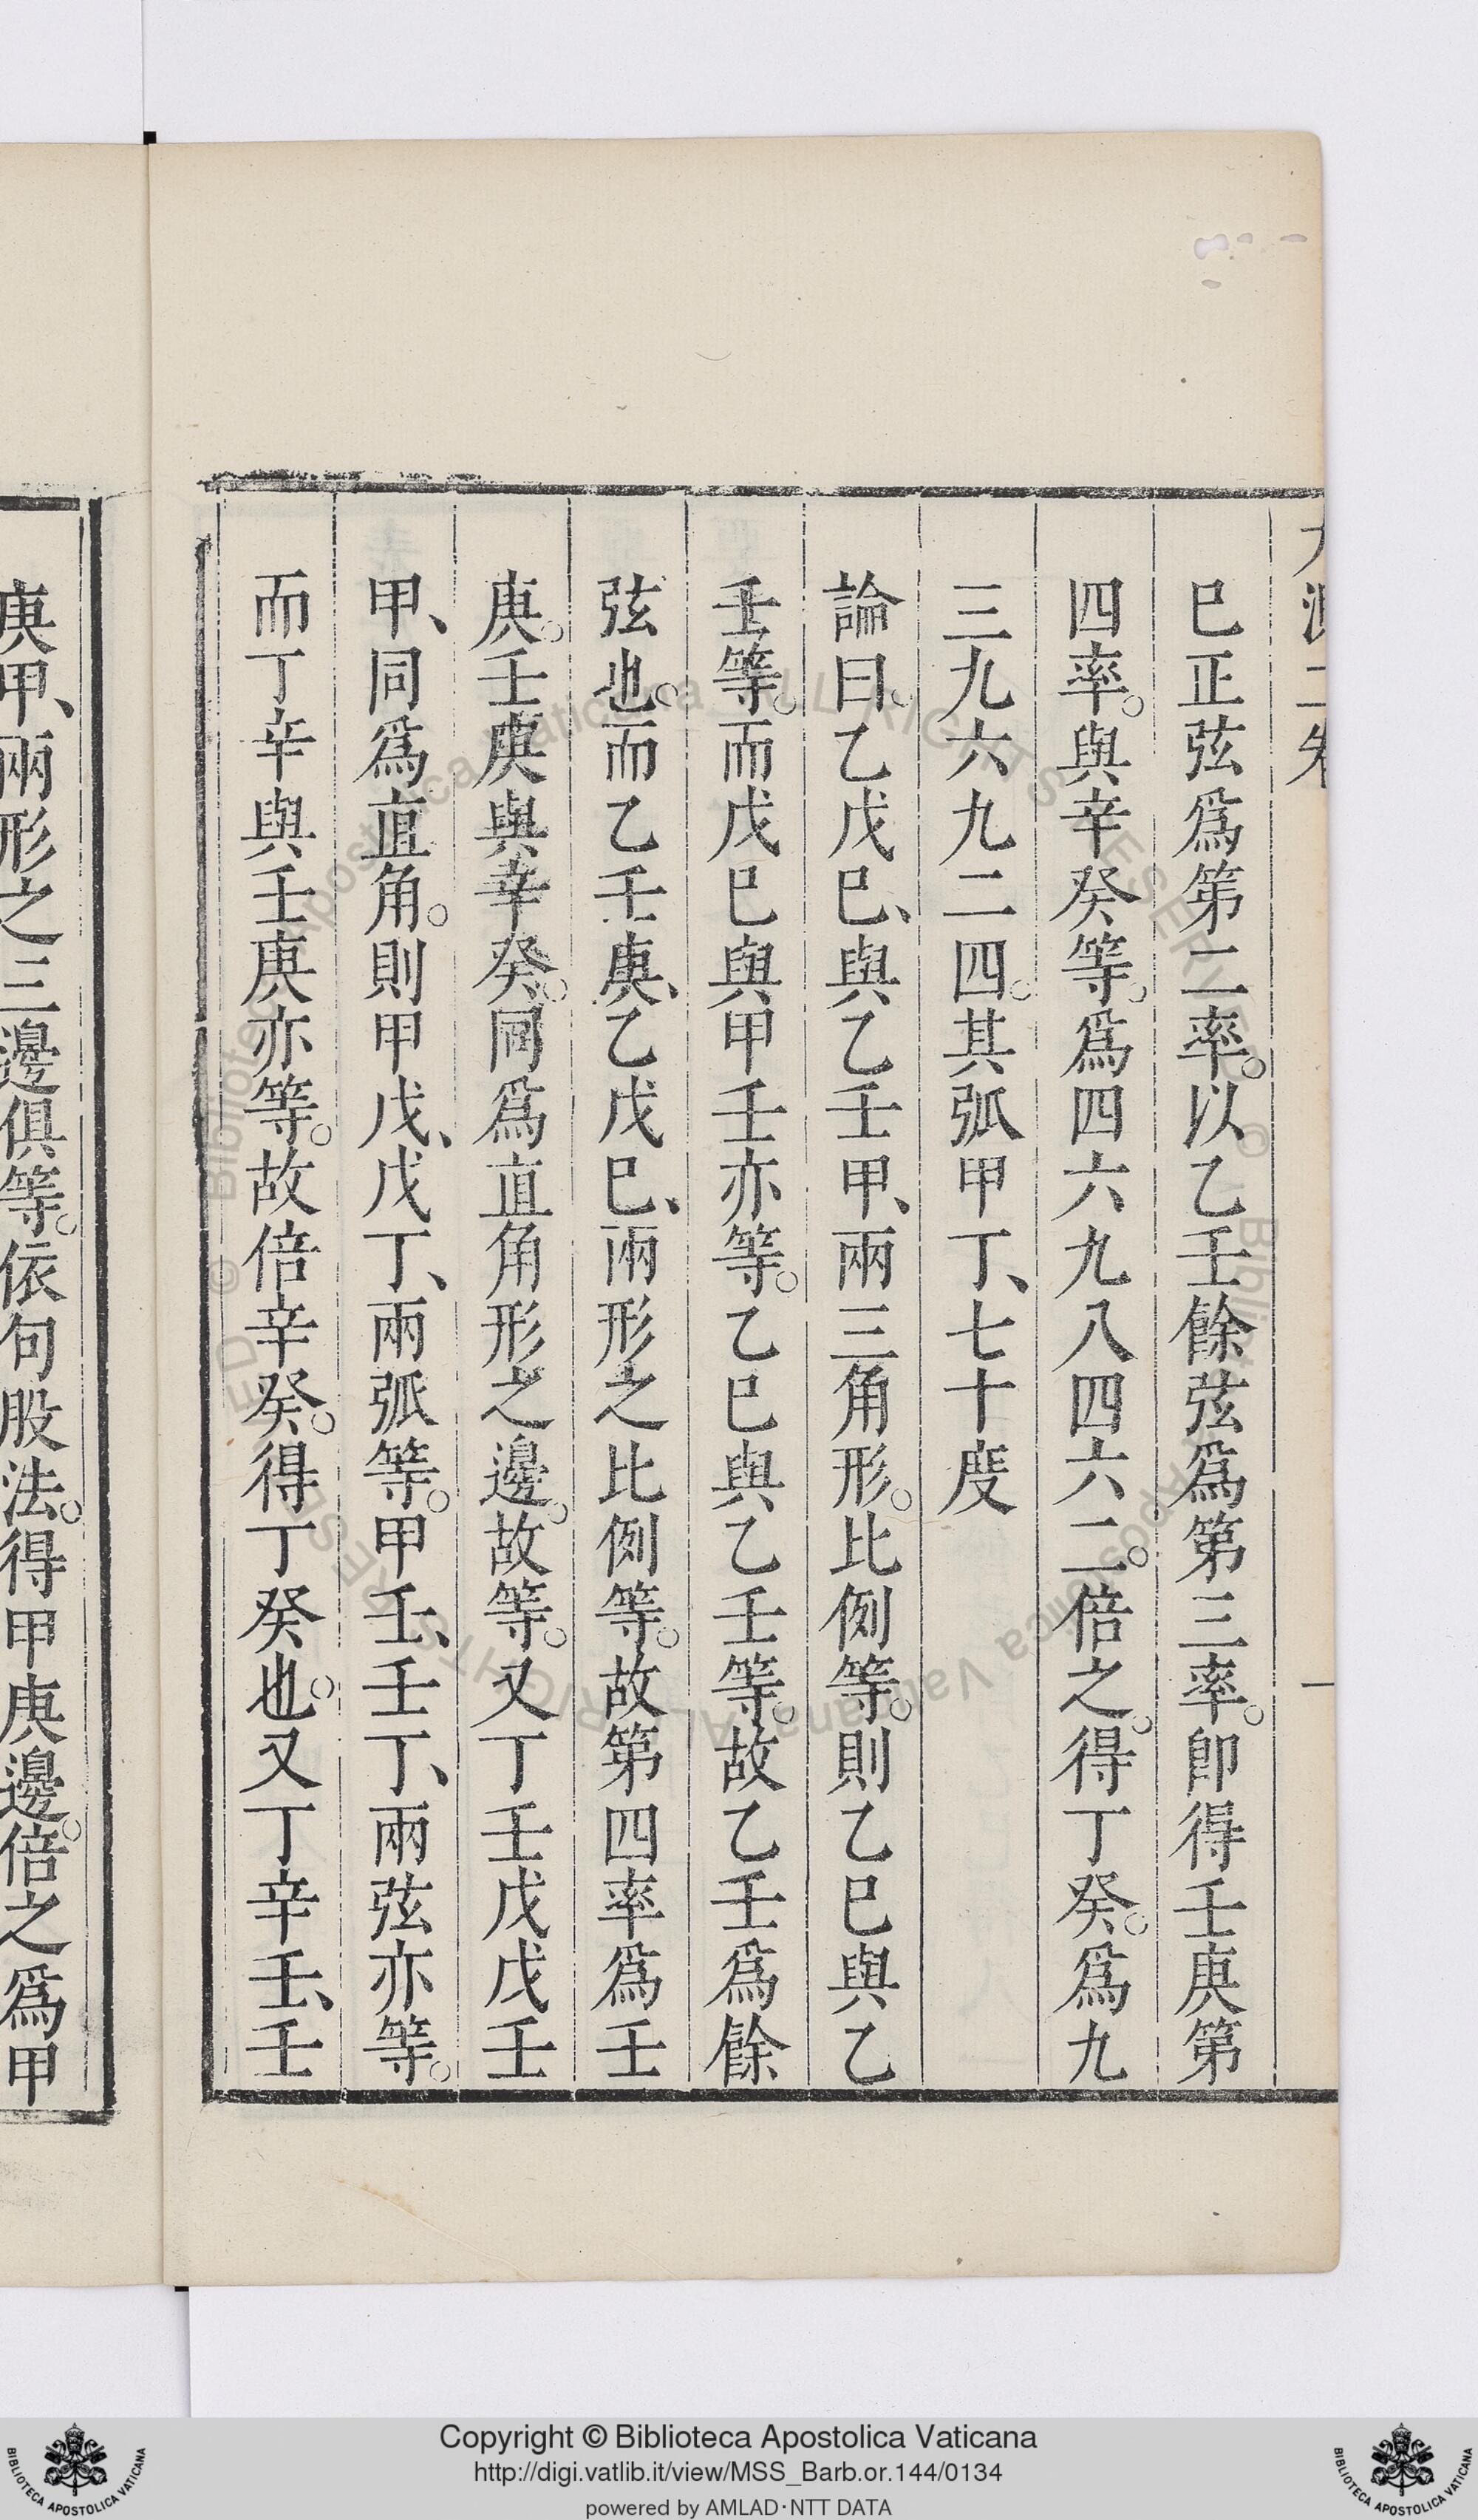 巳正弦爲第二率。以乙壬餘弦爲第三率。卽得壬庚第
四率。與辛癸等。爲四六九八四六二。倍之。得丁癸。爲九
三九六九二四。其弧甲丁、七十度
論曰。乙戊巳、與乙壬甲、兩三角形。比例等。則乙巳與乙
壬等。而戊巳與甲壬亦等。乙巳與乙壬等。故乙壬爲餘
弦也。而乙壬庚、乙戊巳、兩形之比例等。故第四率爲壬
庚。壬庚與辛癸。同爲直角形之邊。故等。又丁壬戊戊壬
甲、同爲直角。則甲戊、戊丁、兩弧等。甲壬、壬丁、兩弦亦等。
而丁辛與壬庚亦等。故倍辛癸。得丁癸也。又丁辛壬、壬
庚甲、兩形之三邊俱等。依句股法。得甲庚邊。倍之爲甲
Copyright © Biblioteca Apostolica Vaticana
http://digi.vatlib.it/view/MSS_Barb.or.144/0134
powered by AMLAD·NTT DATA